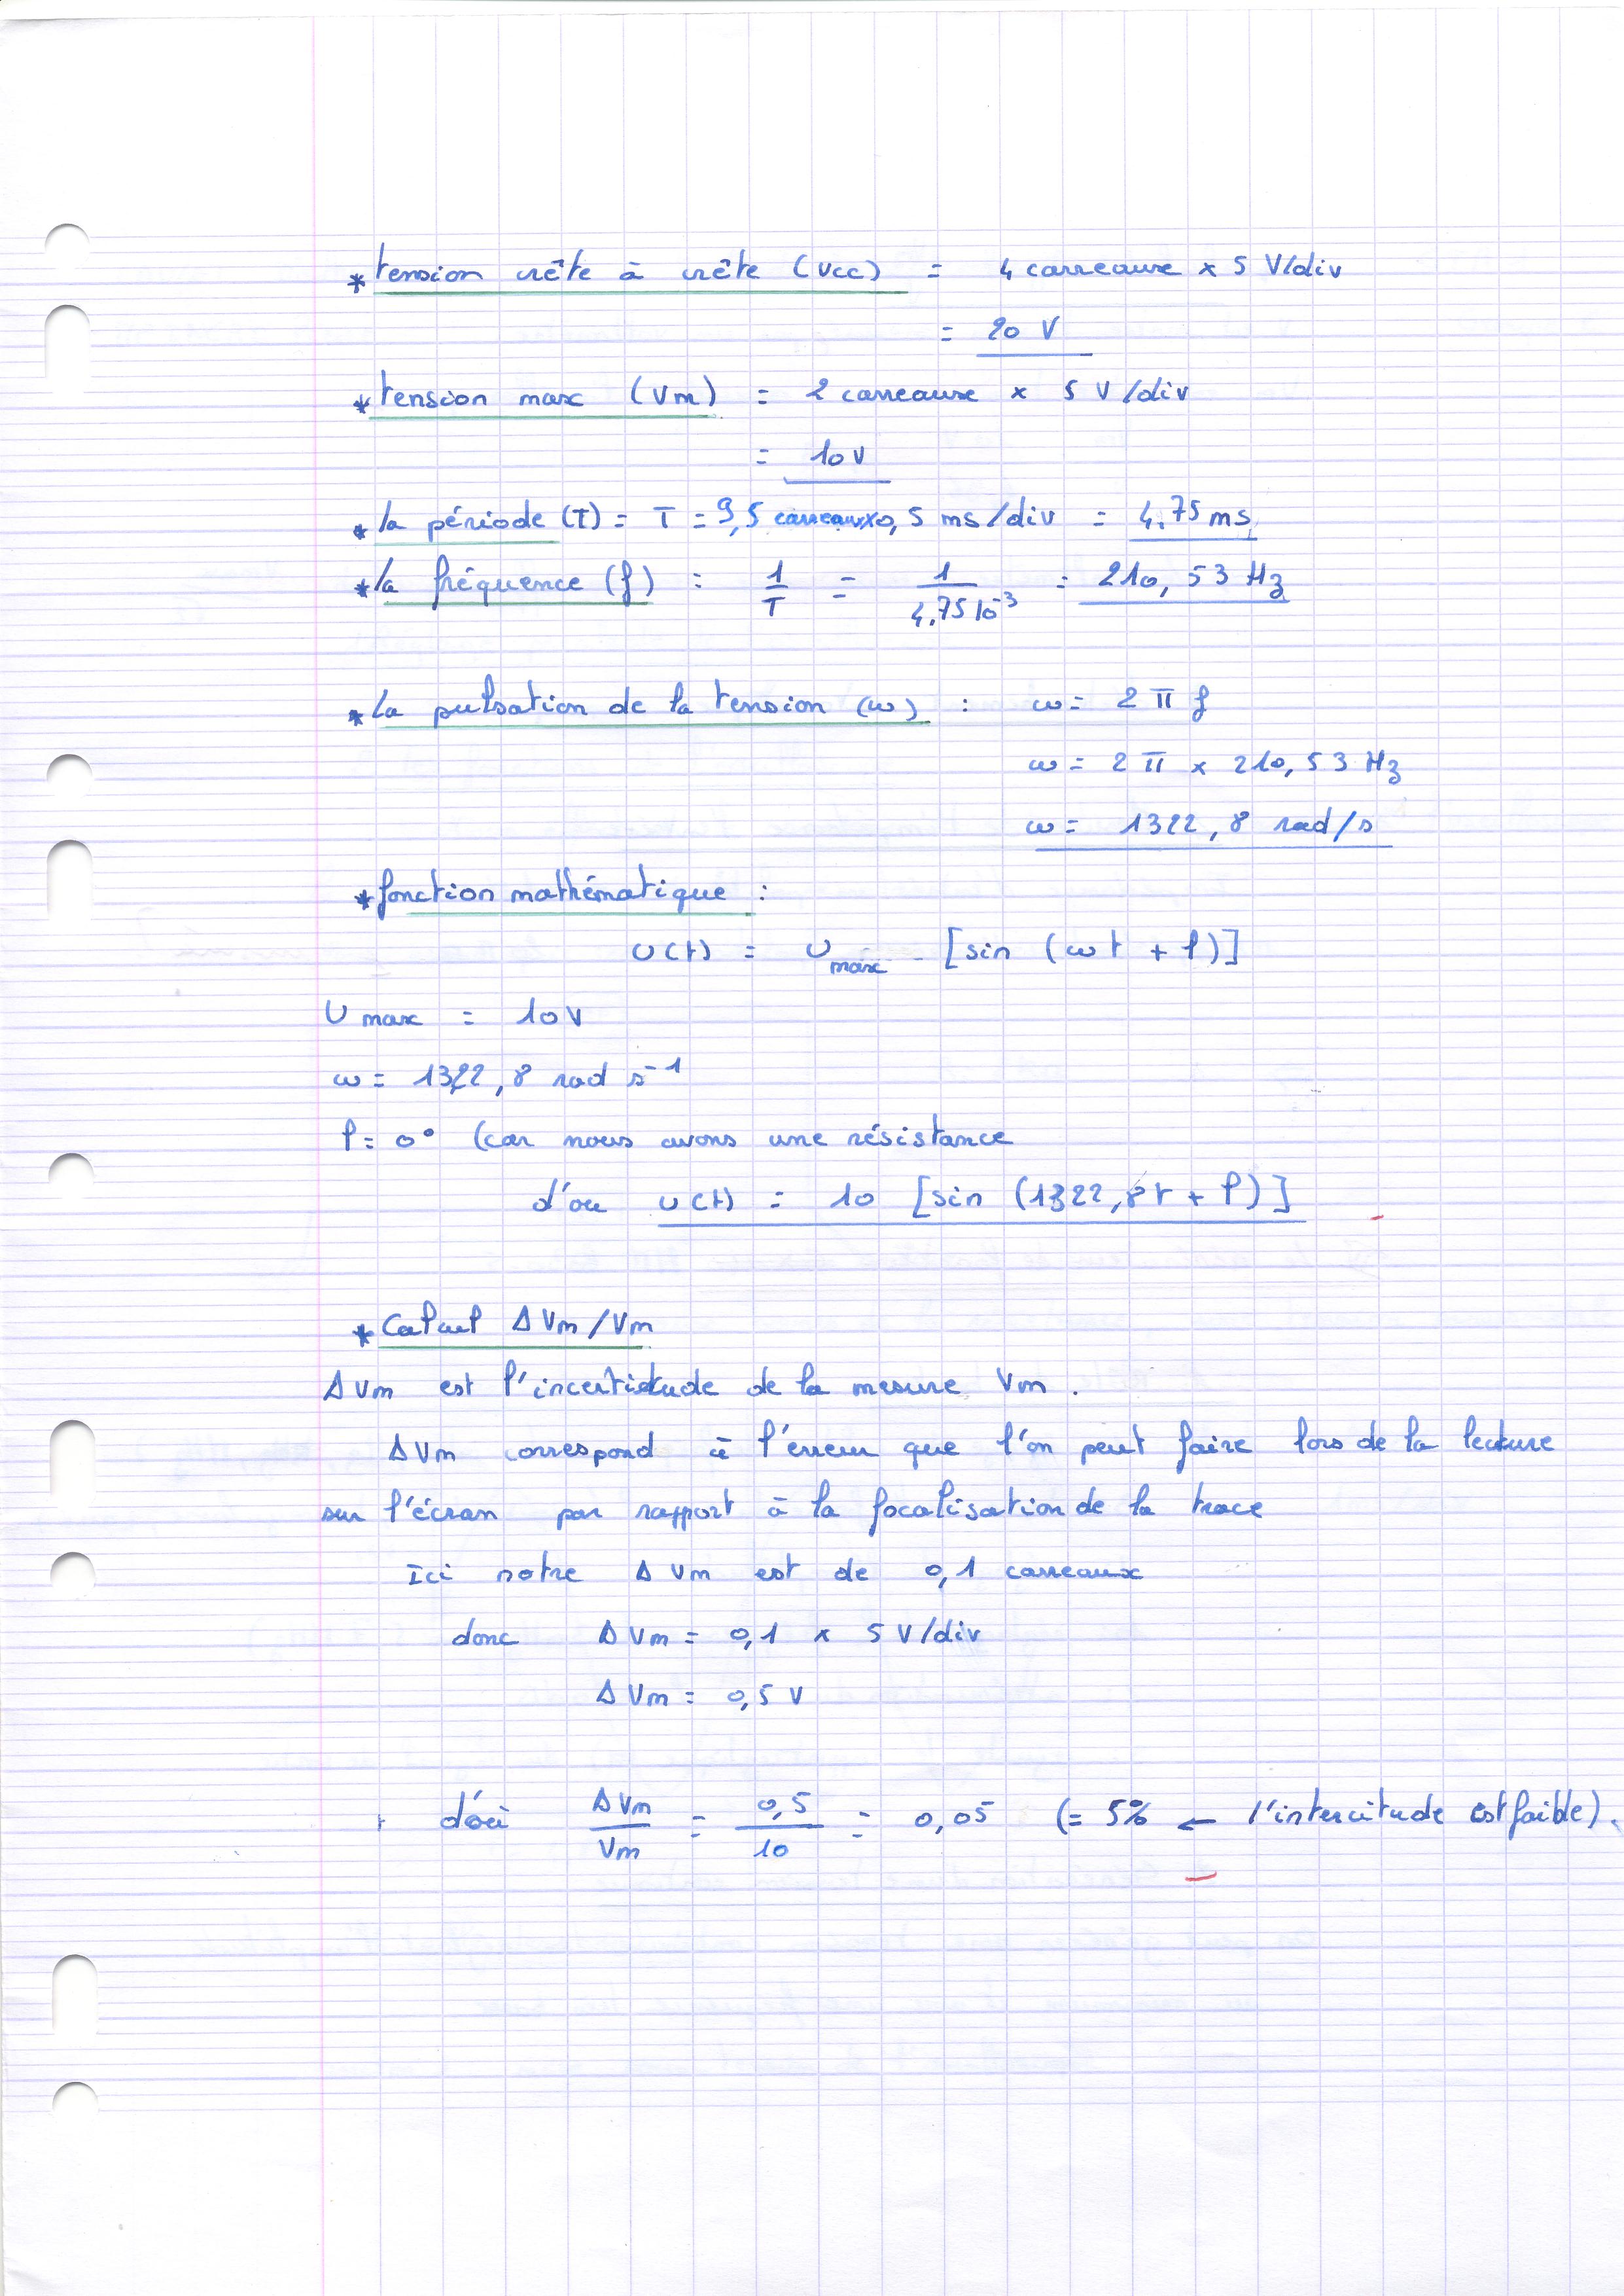 * tension crête à crête (Vcc) = 4 carreaux x 5 V/div
= 20 V
* tension max (Vm) = 2 carreaux x 5 V/div
= 10 V
* la période (T) = T = 9,5 carreaux x 0,5 ms/div = 4,75 ms
* la fréquence (f) : 1/T = 1/4,75 10^-3 = 210,53 Hz
* La pulsation de la tension (ω) : ω = 2 π f
ω = 2 π x 210,53 Hz
ω = 1322,8 rad/s
* fonction mathématique :
U(t) = U max [sin (ωt + φ)]
U max = 10 V
ω = 1322,8 rad s^-1
φ = 0° (car nous avons une résistance
d'ou U(t) = 10 [sin (1322,8t + φ)]
* Calcul Δ Vm/Vm
Δ Vm est l'incertitude de la mesure Vm.
Δ Vm correspond à l'erreur que l'on peut faire lors de la lecture
sur l'écran par rapport à la focalisation de la trace
Ici notre Δ Vm est de 0,1 carreaux
donc Δ Vm = 0,1 x 5 V/div
Δ Vm = 0,5 V
d'où Δ Vm/Vm = 0,5/10 = 0,05 (= 5% ← l'intercitude est faible).